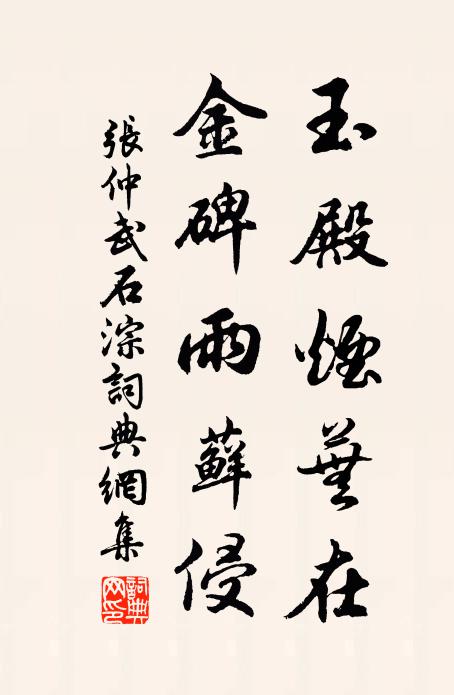 玉殿煙蕪在
金碑雨蘚侵
張仲武石淙詞典網集
詞典網印